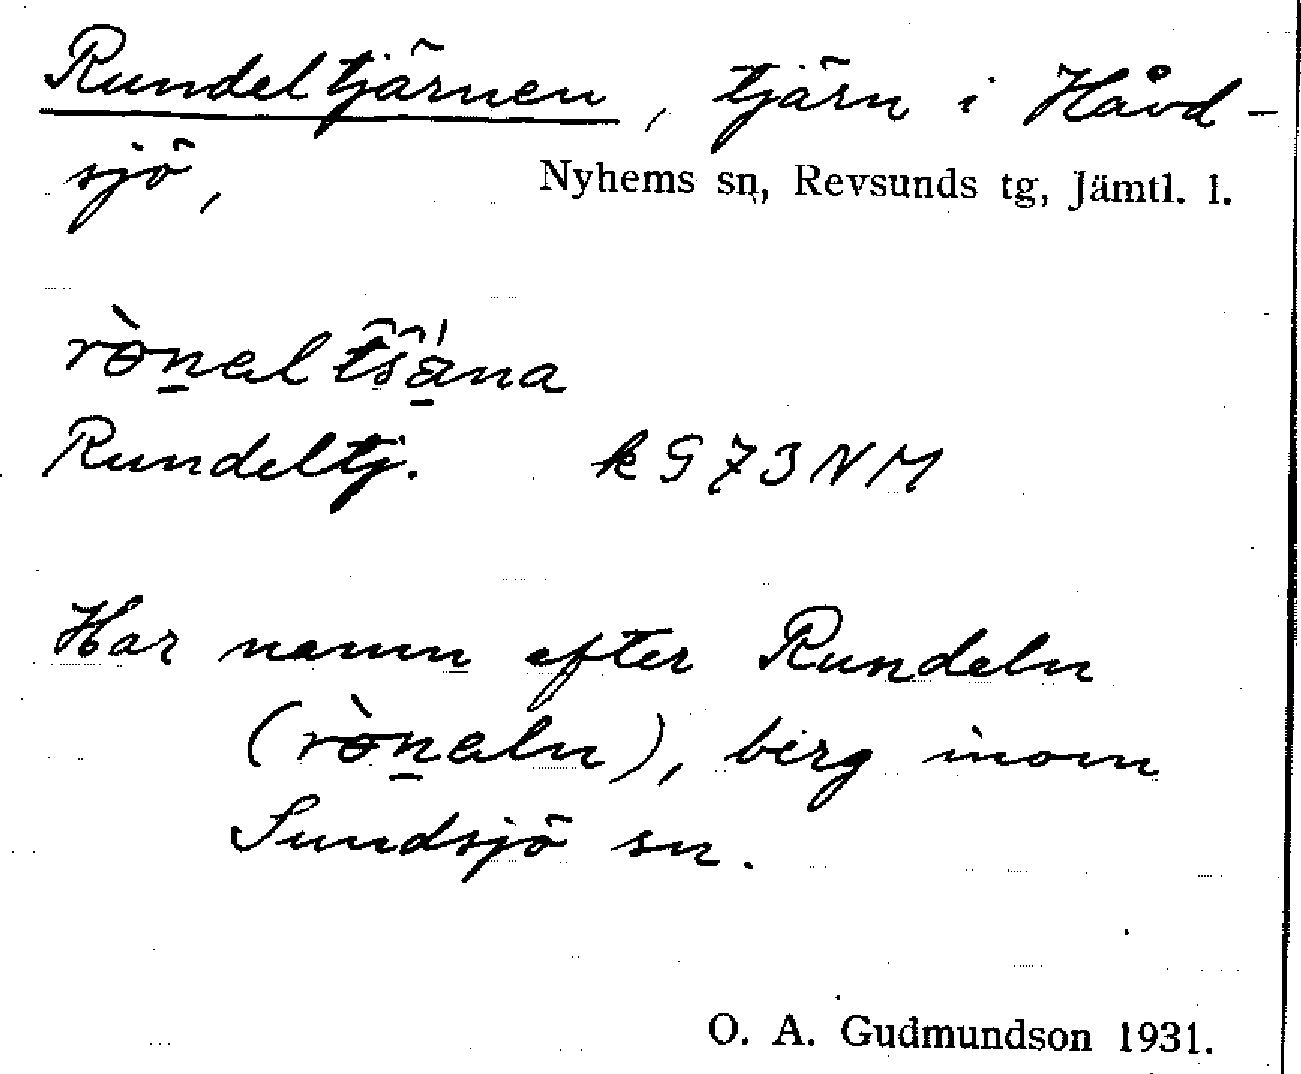 Rundeltjärnen, tjärn i Håvd-
sjö,
Nyhems sn, Revsunds tg, Jämtl. l.
Rundeltj. k G 73 NM
Har namn efter Rundeln
berg inom
Sundsjö sn.
O. A. Gudmundson 1931.